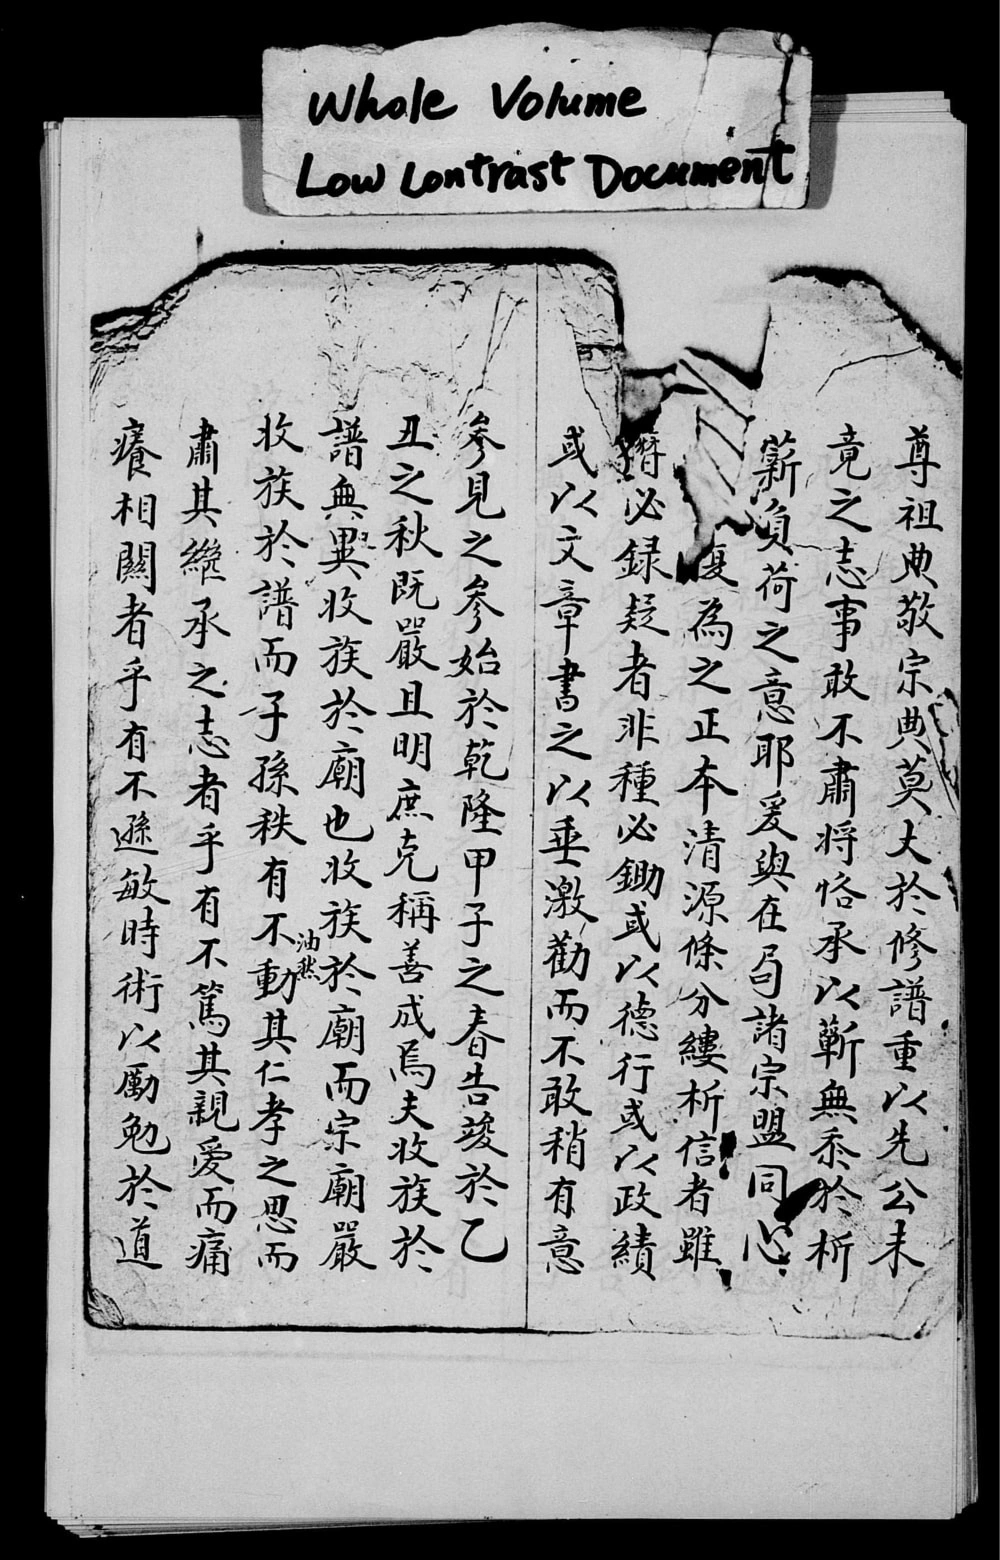 Whole Volume
Low Contrast Document
尊祖典敬宗典莫大於修譜重以先公未
竟之志事敢不肅將恪承以蘄無忝於析
薪負荷之意耶爰與在局諸宗盟同心
復為之正本清源條分縷析信者雖
必錄疑者非種必鋤或以德行或以政績
或以文章書之以垂激勸而不敢稍有意
參見之參始於乾隆甲子之春告竣於乙
丑之秋既嚴且明庶克稱善成焉夫收族於
譜無異收族於廟也收族於廟而宗廟嚴
收族於譜而子孫秩有不動油然其仁孝之思而
肅其繼承之志者乎有不篤其親愛而痛
癢相關者乎有不遜敏時術以勵勉於道